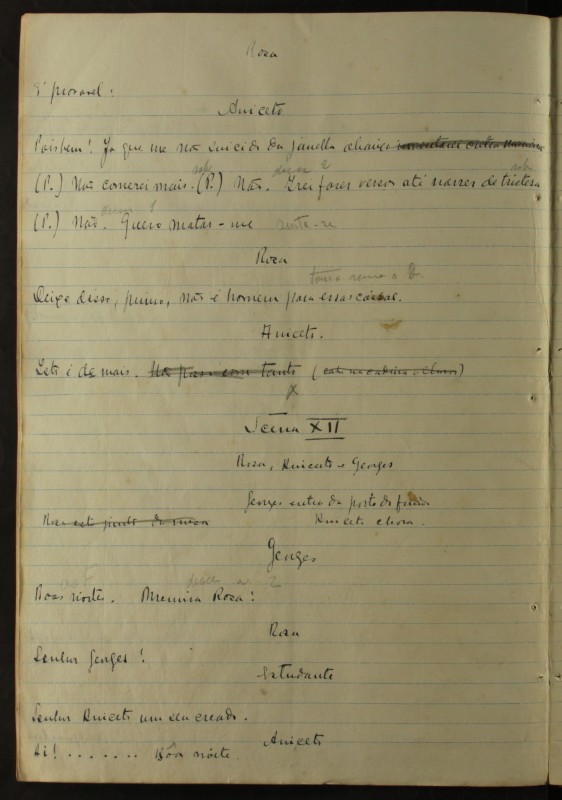 Roza
É provavel.
Aniceto
Pois bem! Ja que me não suicido da janella
(P.) Não comerei mais. (P.) Não. Irei fazer versos até morrer de tristeza
(P.) Não. Quero matar-me sente-se
Roza
Deixe disso, primo, não é homem para essas coisas.
Aniceto.
Isto é de mais. Não posso com tanto (cae na cadeira e chora)
X
Scena XII
Roza, Aniceto e Georges
Georges entra da porta do fundo
Aniceto chora.
Georges
desce a 2
Boas noites. Menina Roza!
Roza
Senhor Georges!
Estudante
Senhor Aniceto um seu creado.
Aniceto
Ai! ....... Bôa noite.